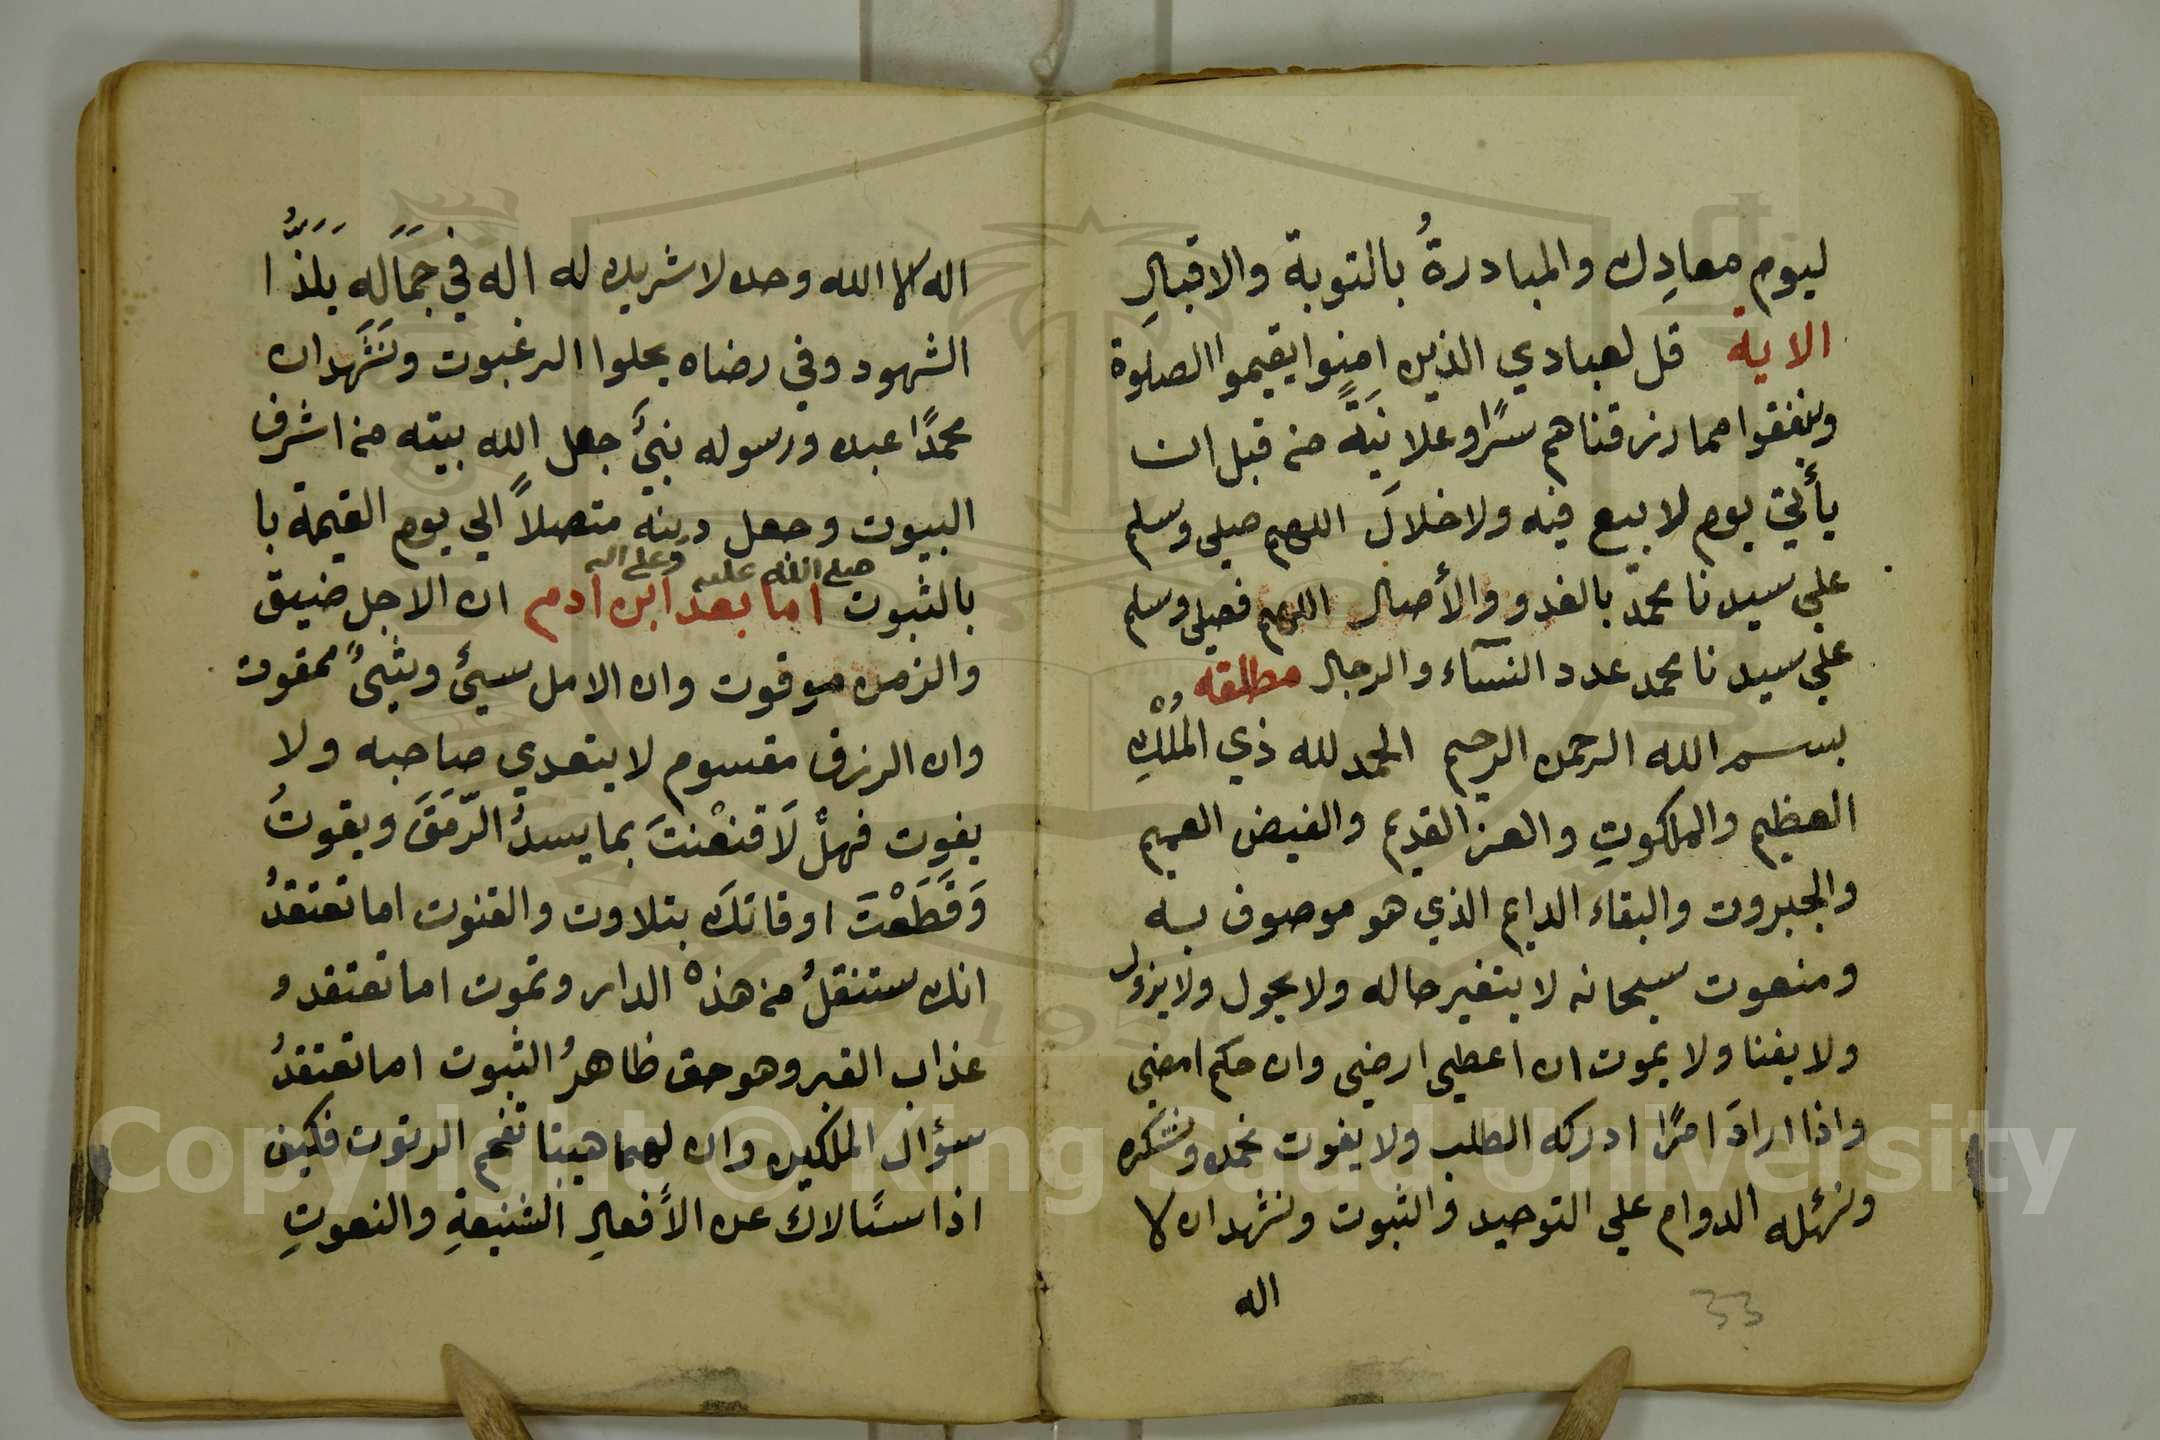 ليوم معادك والمبادرةُ بالتوبة والاقبالِ
الاية قل لعبادي الذين امنوا يقيموا الصلوة
وينفقوا مما رزقناهم سرًا وعلانيَةً من قبل ان
يأتي يوم لا بيع فيه ولا خلالَ اللهم صلي وسلم
علي سيدنا محمد بالغدو والأصال اللهم فصلي وسلم
علي سيدنا محمد عدد النسآء والرجال مطلقه
بسم الله الرحمن الرحيم الحمد لله ذي المُلْكِ
العظيم والملكوتِ والعز القديم والفيض العميم
والجبروت والبقاء الدايم الذي هو موصوف به
ومنعوت سبحانه لا يتغير حاله ولا يحول ولا يزول
ولا يفنا ولا يموت ان اعطي ارضي وان حكم امضي
واذا ارادَ امرًا ادركه الطلب ولا يفوت نحمده ونشكره
ونسئله الدوام علي التوحيد والثبوت ونشهد ان لا
اله
33
اله الا الله وحده لا شريك له اله في جَمَالَه يَلَذُّ ا
الشهود وفي رضاه يحلوا الرغبوت ونَشَهد ان
محمدًا عبده ورسوله نبيَ جعل الله بيته من اشرف
البيوت وجعل دينه متصلاً الي يوم القيمة با
صلى الله عليه وعلى اله
بالثبوت اما بعد ابن ادم ان الاجل ضيق
والزمن موقوت وان الامل سيئ وشيئ ممقوت
وان الرزق مقسوم لا يتعدي صاحبه ولا
يفوت فهلْ لَا قنعْنتَ بما يسدُ الرّمَقَ ويقوتُ
وَقَطَعْتَ اوقاتكَ بتلاوت والقنوت اما تعتقدُ
انك ستنقلُ من هذه الدار وتموت اما تعتقد و
عذاب القبر وهو حق ظاهرُ الثبوت اما تعتقدُ
سؤال الملكين وان لهما هيبتا تفحم الرتوت فكيف
اذا سئالاك عن الأَفعالِ الشنيعةِ والنعوتِ
Copyright © King Saud University
1957